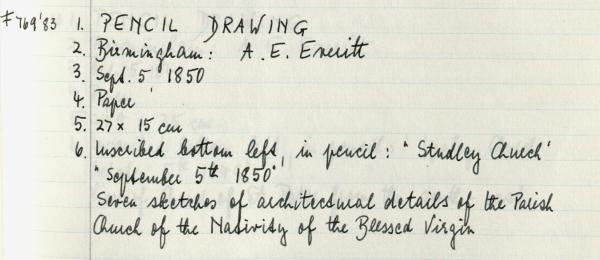 # 769'83 1. PENCIL DRAWING
2. Birmingham: A. E. Everitt
3. Sept. 5 1850
4. Paper
5. 27 x 15 cm
6. Inscribed bottom left, in pencil: "Studley Church'
"September 5th 1850"
Seven sketches of architectural details of the Parish
Church of the Nativity of the Blessed Virgin